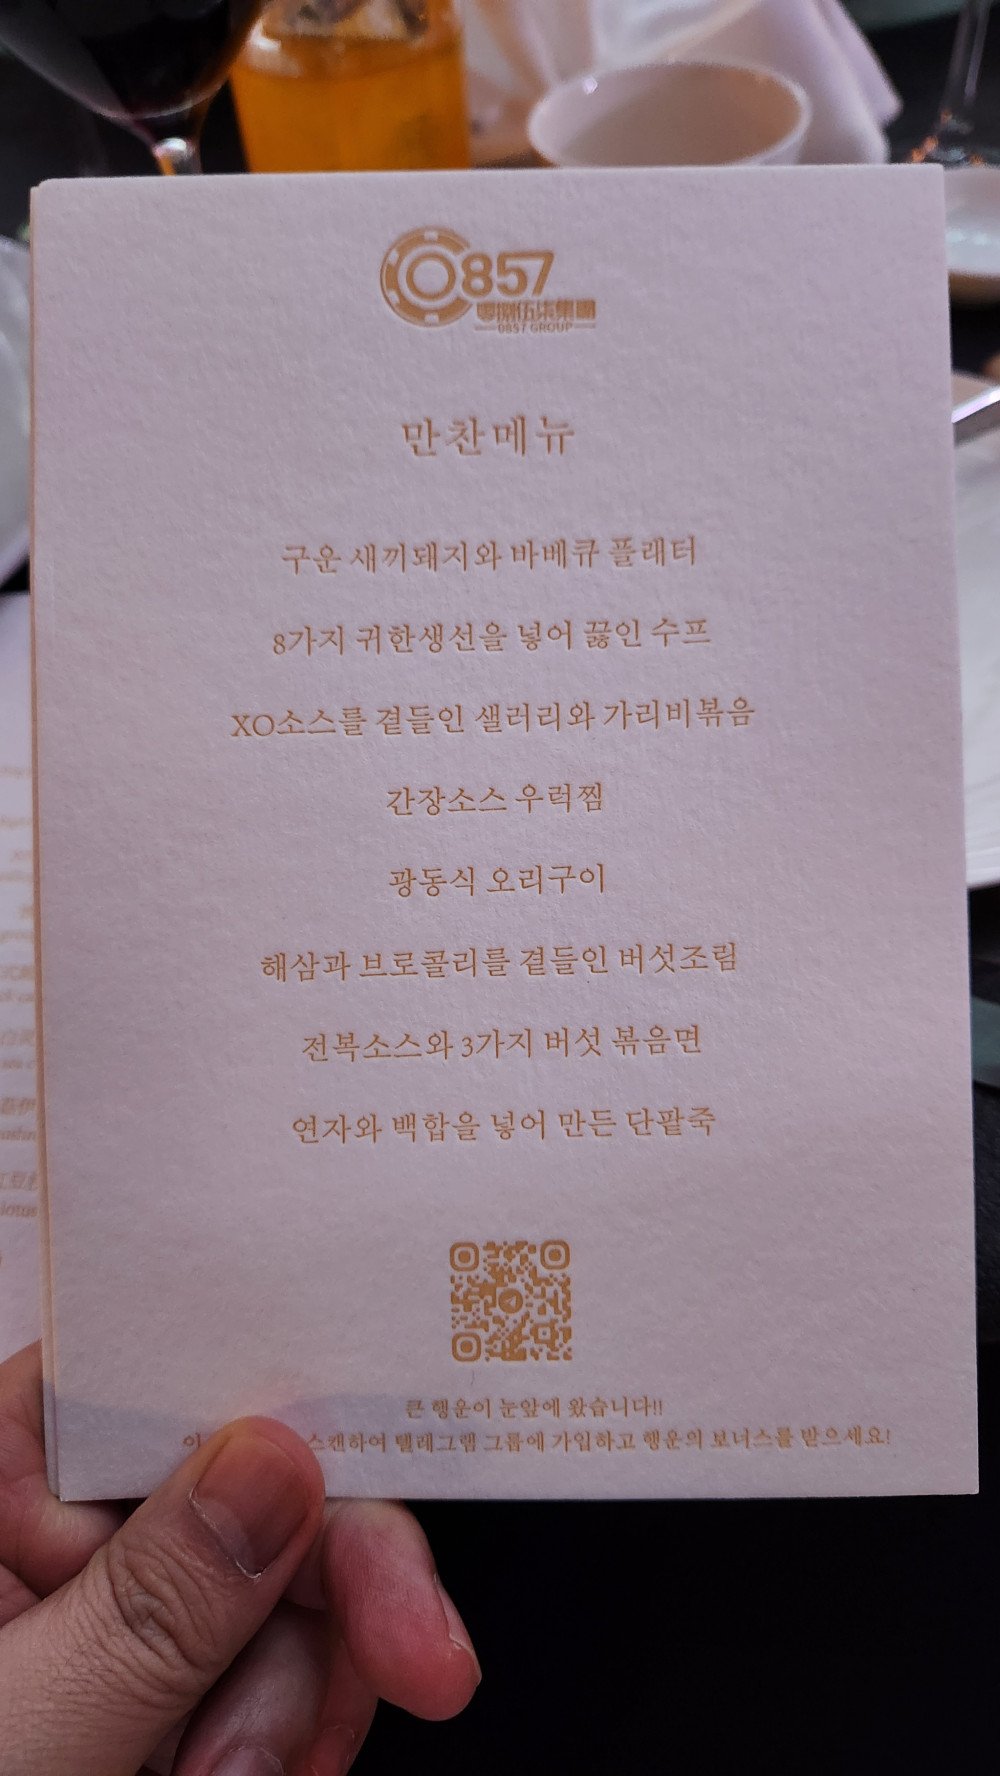 857
零捌伍柒集團
0857 GROUP
만찬메뉴
구운 새끼돼지와 바베큐 플래터
8가지 귀한생선을 넣어 끓인 수프
XO소스를 곁들인 샐러리와 가리비볶음
간장소스 우럭찜
광동식 오리구이
해삼과 브로콜리를 곁들인 버섯조림
전복소스와 3가지 버섯 볶음면
연자와 백합을 넣어 만든 단팥죽
큰 행운이 눈앞에 왔습니다!!
스캔하여 텔레그램 그룹에 가입하고 행운의 보너스를 받으세요!